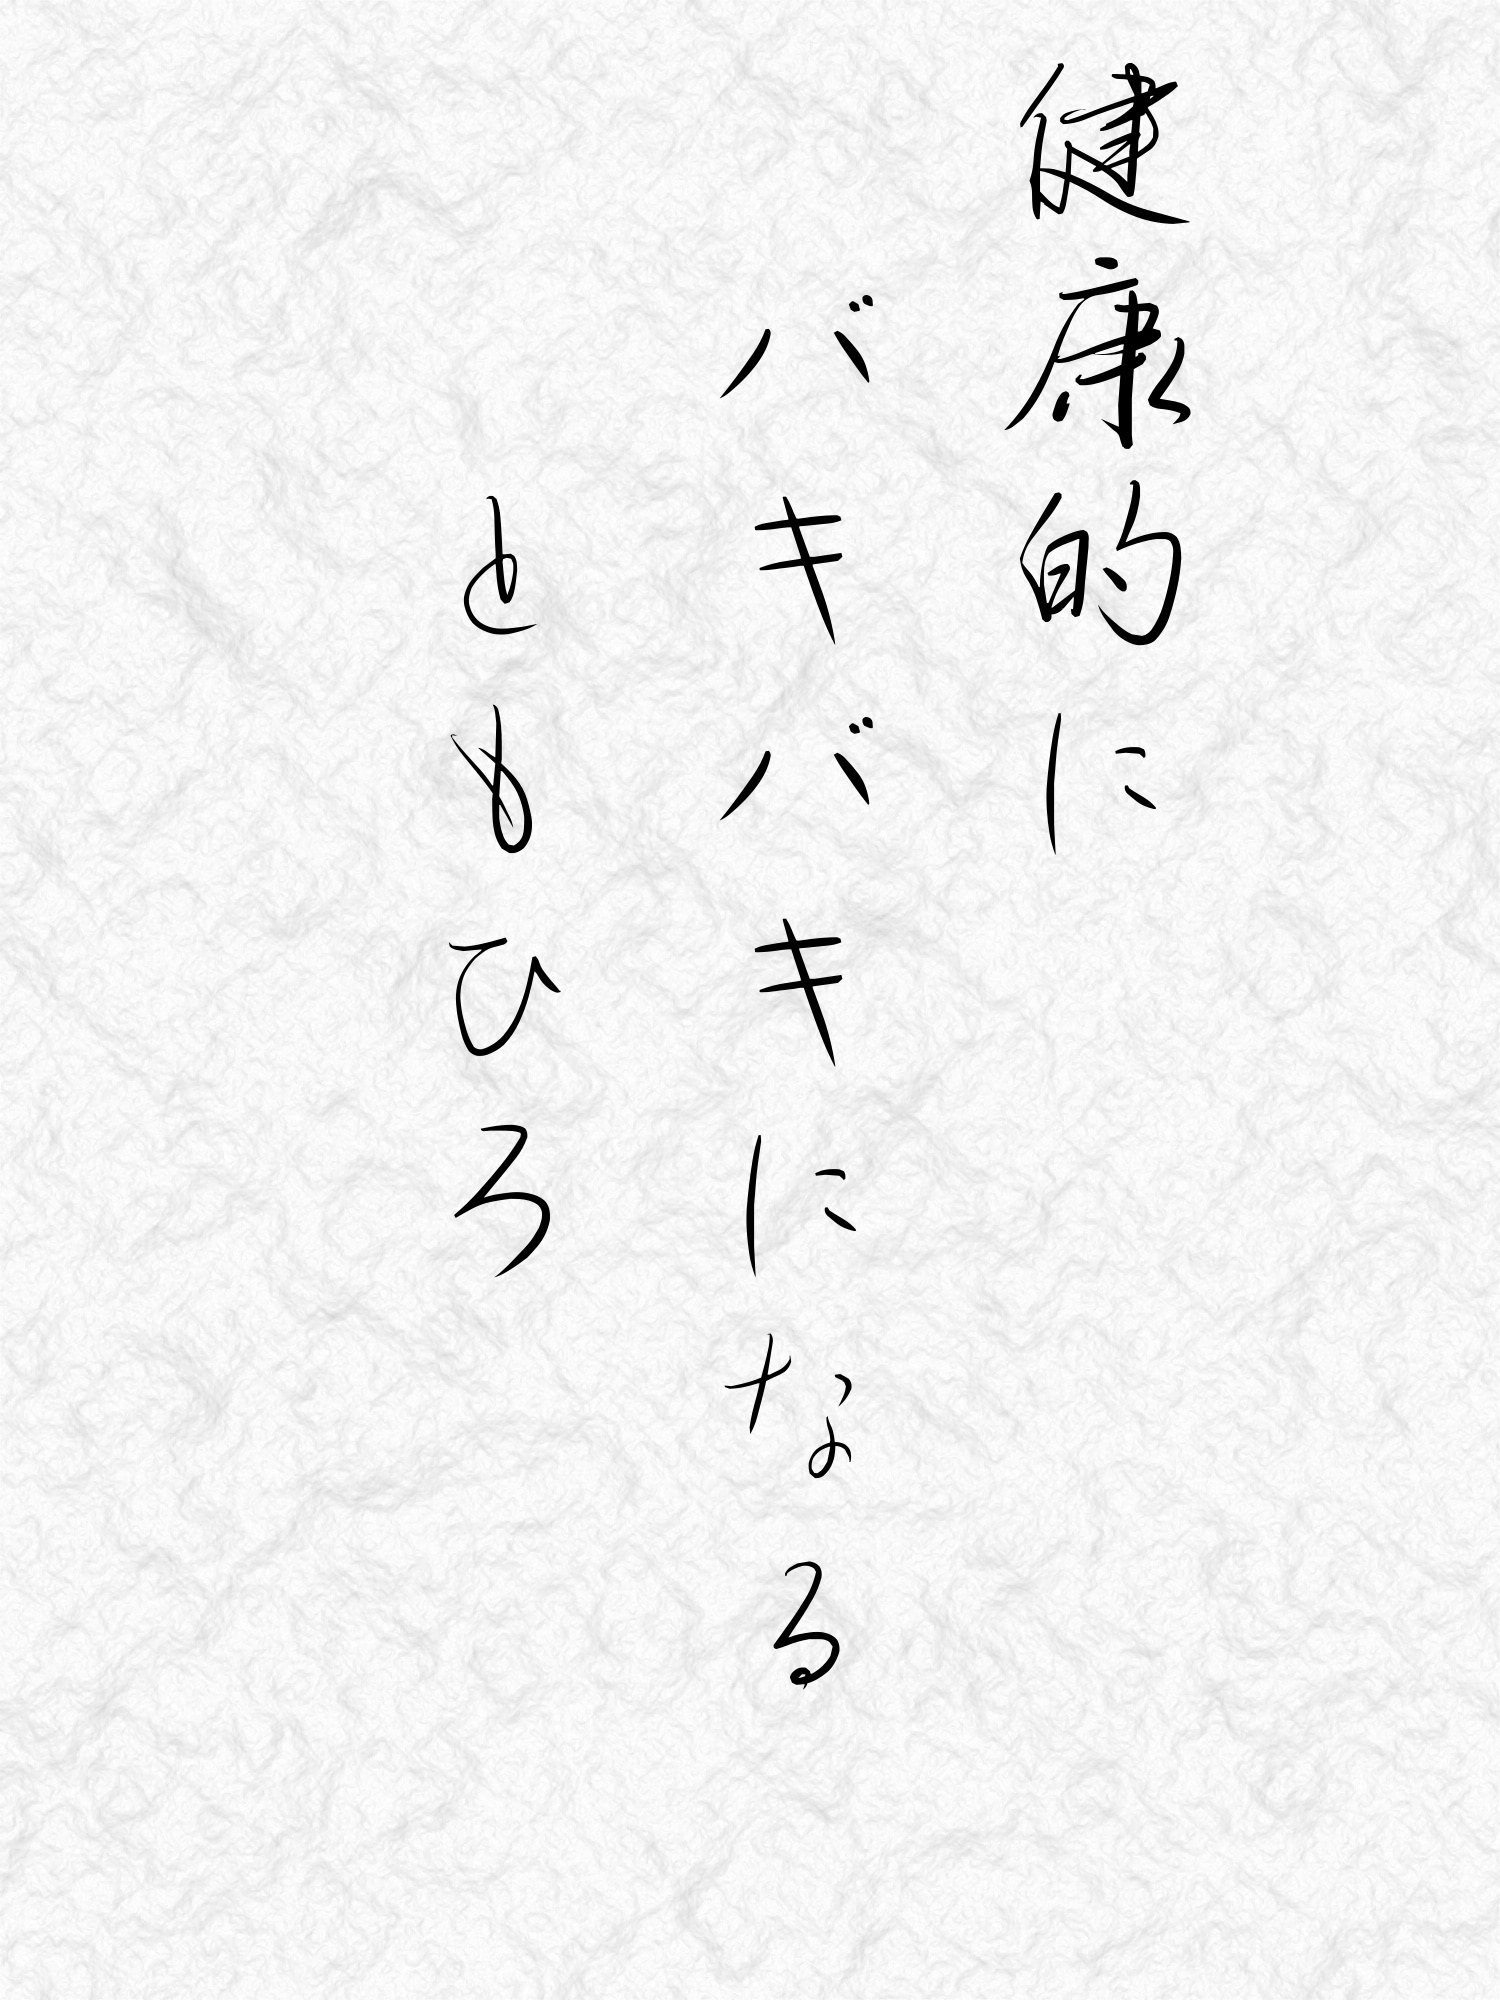 健康的に
バキバキになる
ともひろ